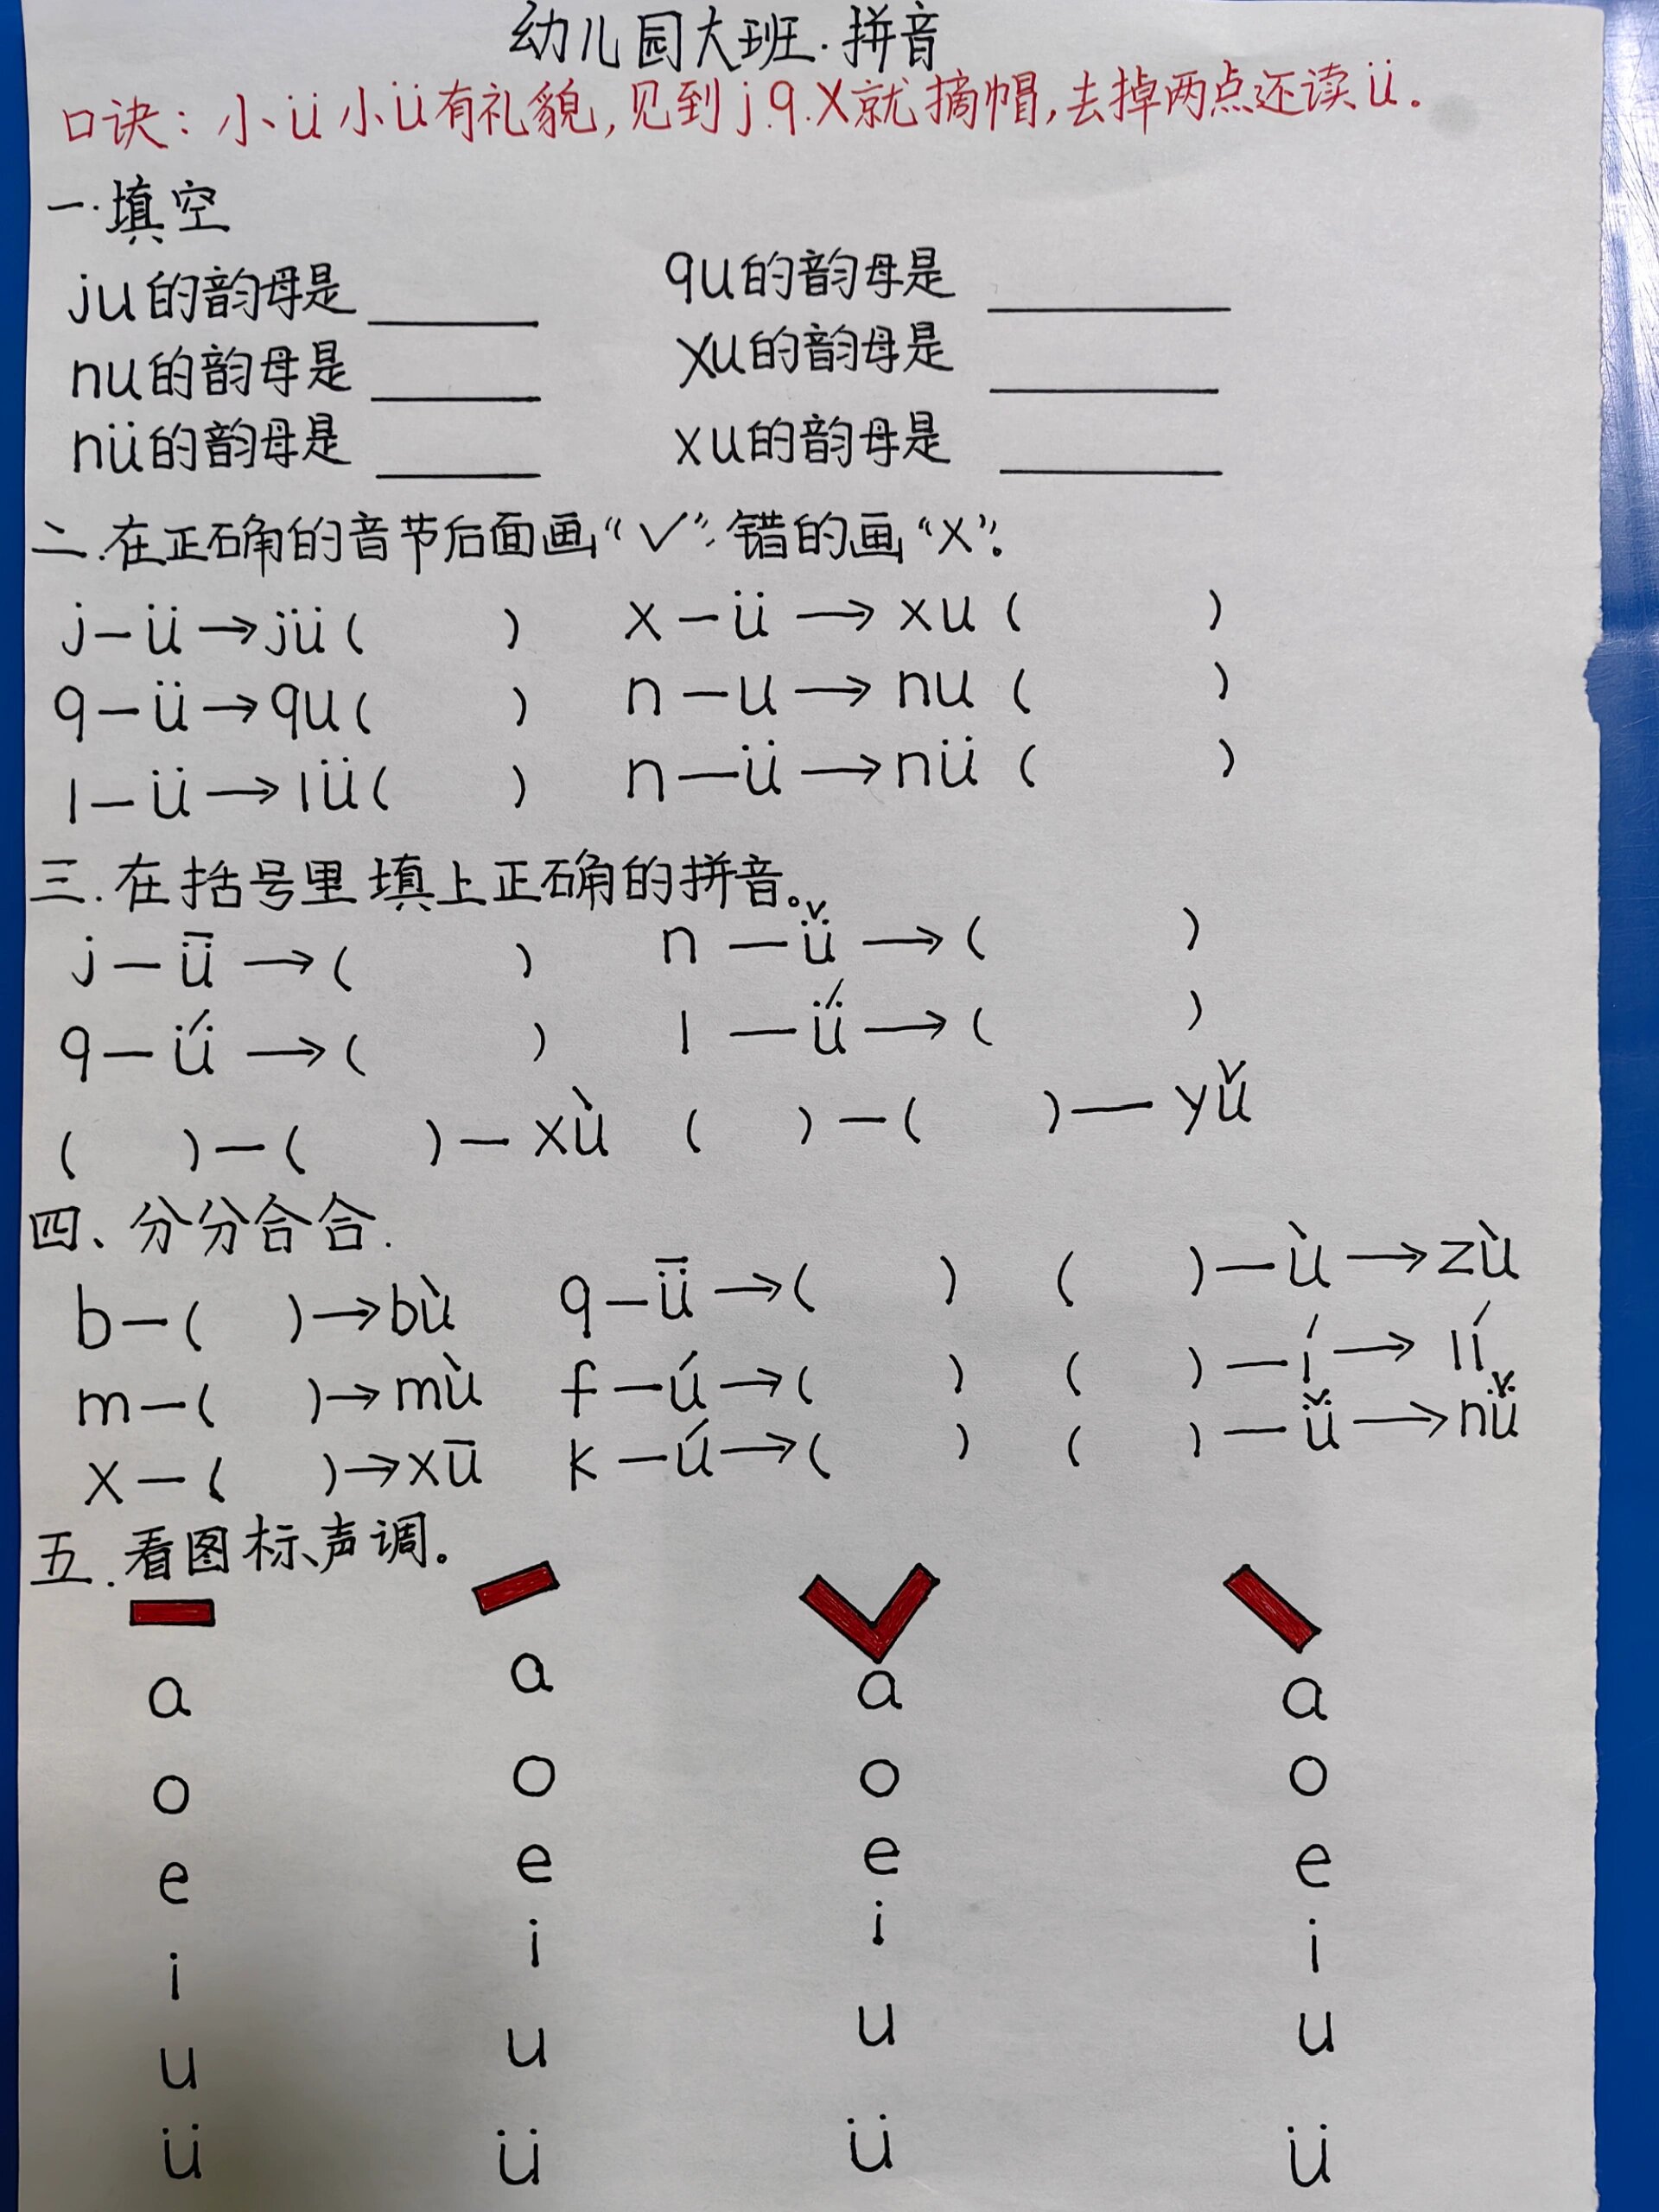 幼儿园大班.拼音
口诀：小ü小ü有礼貌,见到j.q.x就摘帽,去掉两点还读ü。
一.填空
ju的韵母是______ qu的韵母是______
nu的韵母是______ xu的韵母是______
nü的韵母是______ xu的韵母是______
二.在正确的音节后面画“✓”,错的画“X”。
j—ü→jü( ) x—ü→xu( )
q—ü→qu( ) n—u→nu( )
l—ü→lü( ) n—ü→nü( )
三.在括号里填上正确的拼音。
j—ǖ→( ) n—ǚ→( )
q—ǘ→( ) l—ǘ→( )
( )—( )—xù ( )—( )—yǔ
四、分分合合.
b—( )→bù q—ǖ→( ) ( )—ù→zù
m—( )→mù f—ú→( ) ( )—í→lí
x—( )→xū k—ú→( ) ( )—ǚ→nǚ
五.看图标声调。
ˉ ˊ ˇ ˋ
a a a a
o o o o
e e e e
i i i i
u u u u
ü ü ü ü